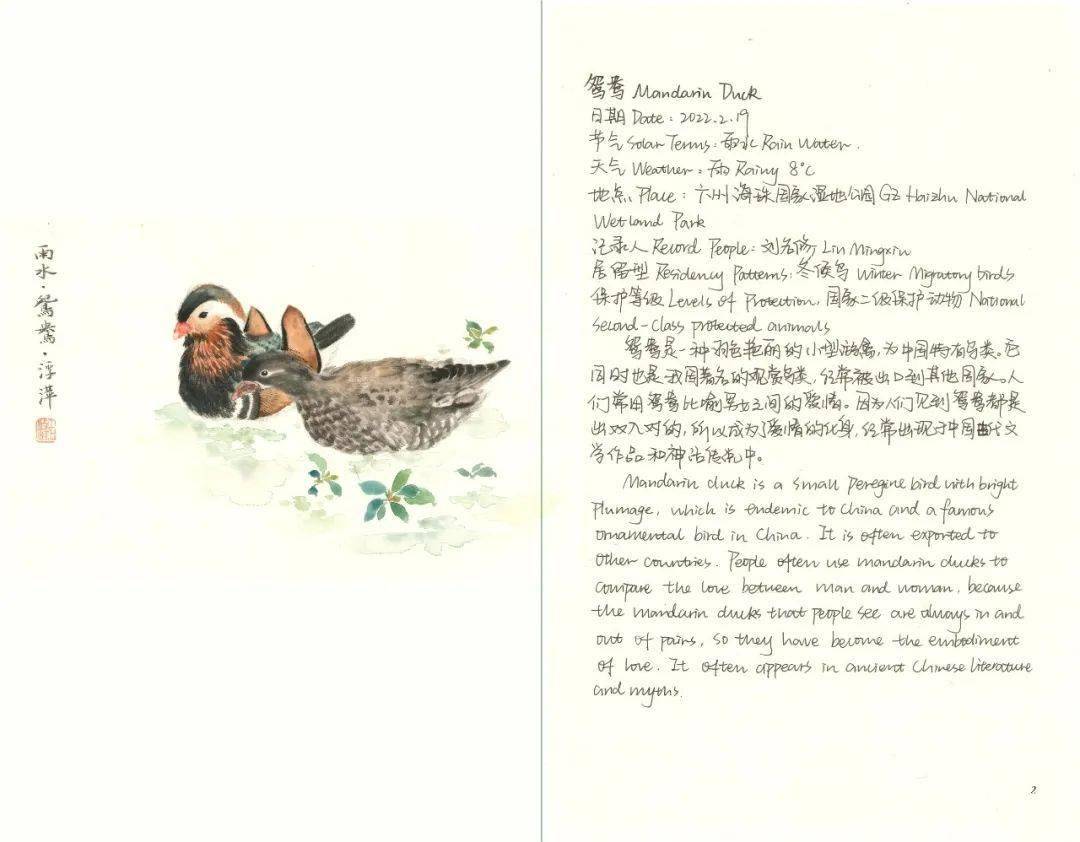 雨水·鴛鴦·浮萍
鸳鸯 Mandarin Duck
日期 Date: 2022.2.19
节气 Solar Terms: 雨水 Rain Water.
天气 Weather: 雨 Rainy 8°C
地点 Place: 广州海珠国家湿地公园 GZ Haizhu National
Wetland Park
记录人 Record People: Lin Mingxiu
居留型 Residency Patterns: 冬候鸟 Winter Migratory birds
保护等级 Levels of Protection: 国家二级保护动物 National
second-class protected animals
鸳鸯是一种羽色艳丽的小型游禽,为中国特有鸟类。它
同时也是我国著名的观赏鸟类,经常被出口到其他国家。人
们常用鸳鸯比喻男女之间的爱情。因为人们见到鸳鸯都是
出双入对的,所以成为了爱情的化身,经常出现于中国古代文
学作品和神话传说中。
Mandarin duck is a small Peregine bird with bright
Plumage, which is endemic to China and a famous
ornamental bird in China. It is often exported to
other countries. People often use mandarin ducks to
compare the love between man and woman, because
the mandarin ducks that people see are always in and
out of pairs, so they have become the embodiment
of love. It often appears in ancient Chinese literature
and myths.
2